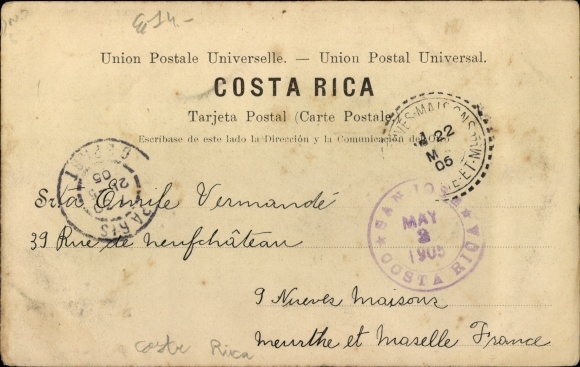 G 14.-
Union Postale Universelle. — Union Postal Universal.
COSTA RICA
Tarjeta Postal (Carte Postale)
Escribase de este lado la Dirección y la Comunicación del otro
NVES-MAISONS
22
05
PARIS
25
05
SAN JOSE
MAY
2
1905
COSTA RICA
Srta Emile Vermandé
39 Rue de neufchâteau
9 Nueves Maisons
Meurthe et Maselle France
Costa Rica